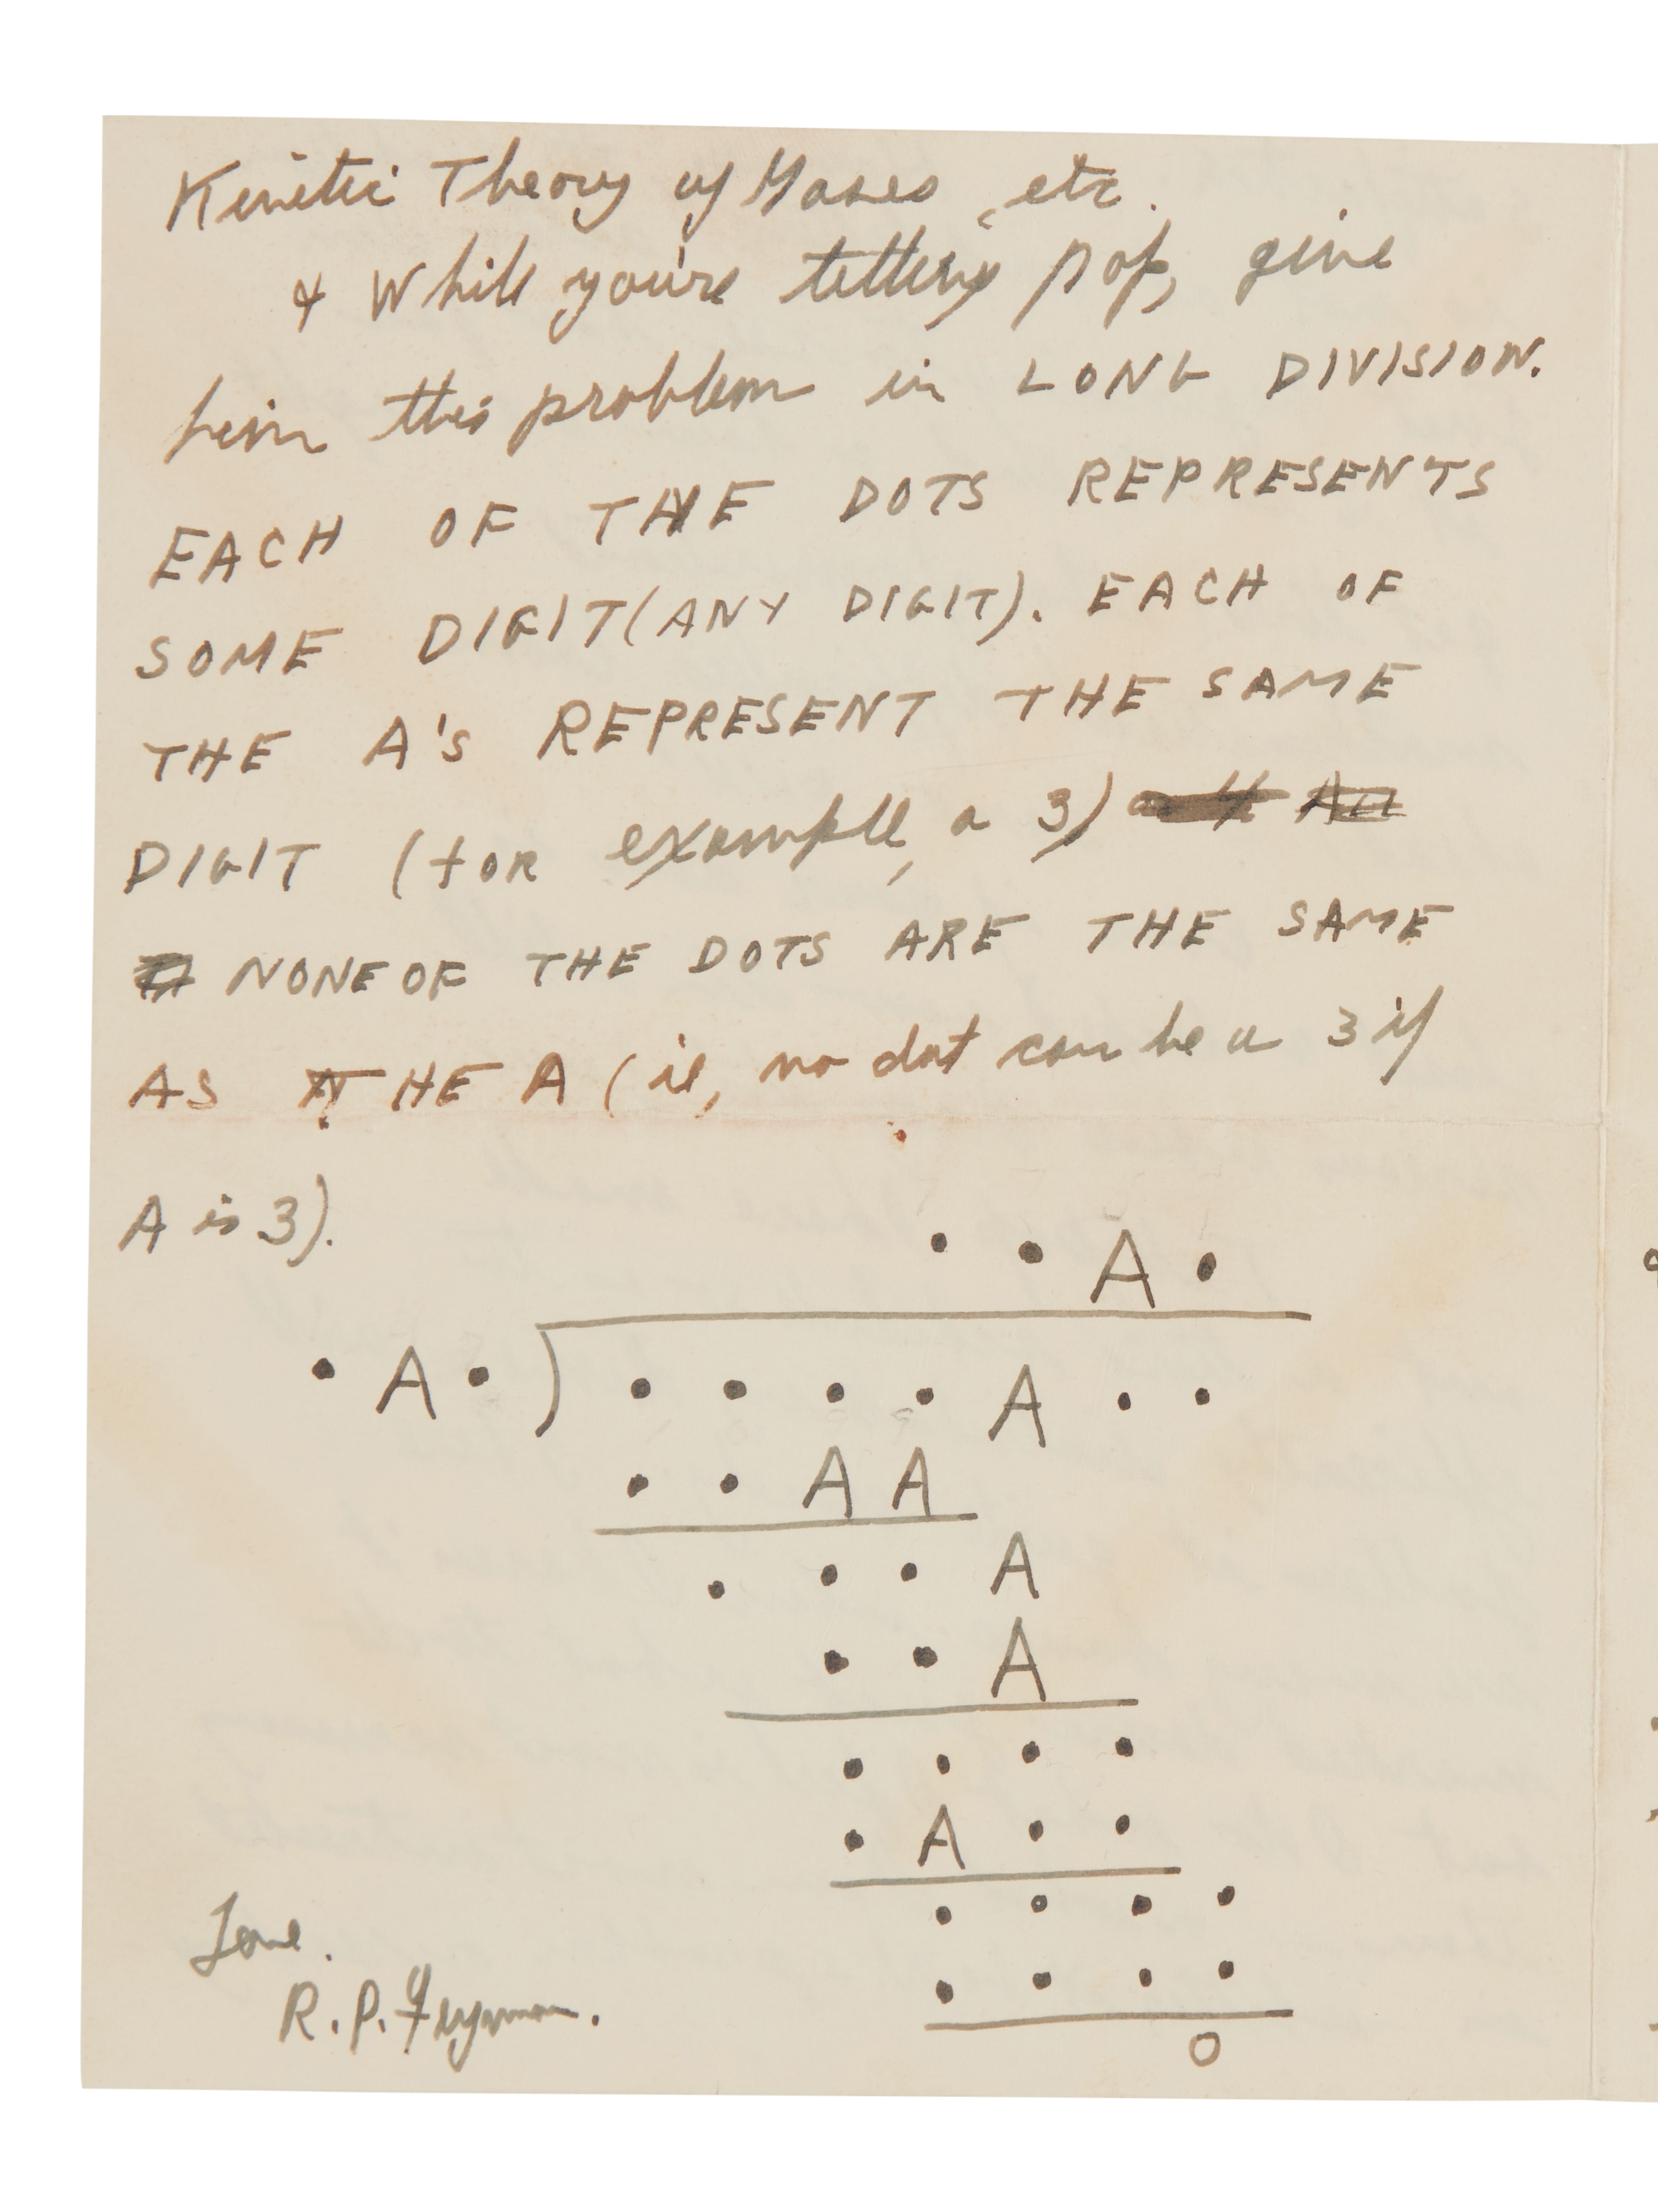 Kinetic Theory of Gases, etc.
& While you're telling pop, give
him this problem in LONG DIVISION.
EACH OF THE DOTS REPRESENTS
SOME DIGIT (ANY DIGIT). EACH OF
THE A'S REPRESENT THE SAME
DIGIT (for example, a 3)
NONE OF THE DOTS ARE THE SAME
AS THE A (ie, no dot can be a 3 if
A is 3).
. . A .
. A . ) . . . . A . .
. . A A
. . . A
. . A
. . . .
. A . .
. . . .
. . . .
0
Love.
R.P. Feynman.